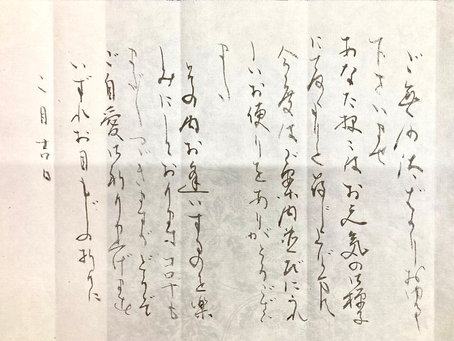 ご無沙汰ばかりお許し
下さいませ
あなた様にはお元気の御様子
にて
今度はご案内並びにうれ
しいお便りをありがとうござい
ました
その内お逢いするのを楽
しみにしております コロナも
つづきますがどうぞ
ご自愛お祈り申し上げます
いずれお目もじの折りに
二月吉日